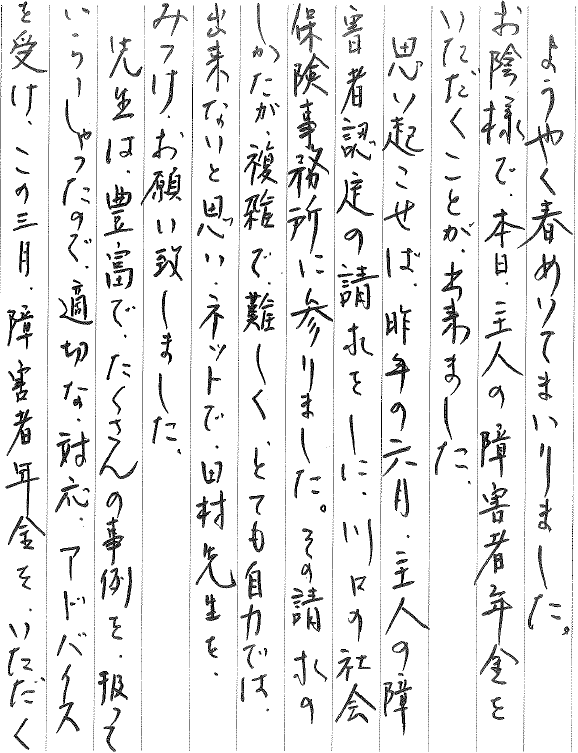 ようやく春めいてまいりました。
お陰様で、本日、主人の障害者年金を
いただくことが、出来ました。
思い起こせば、昨年の六月、主人の障
害者認定の請求をしに、川口の社会
保険事務所に参りました。その請求の
しかたが、複雑で、難しく、とても自力では、
出来ないと思い、ネットで、田村先生を、
みつけ、お願い致しました。
先生は、豊富で、たくさんの事例を、扱って
いらっしゃったので、適切な、対応、アドバイス
を受け、この三月、障害者年金を、いただく